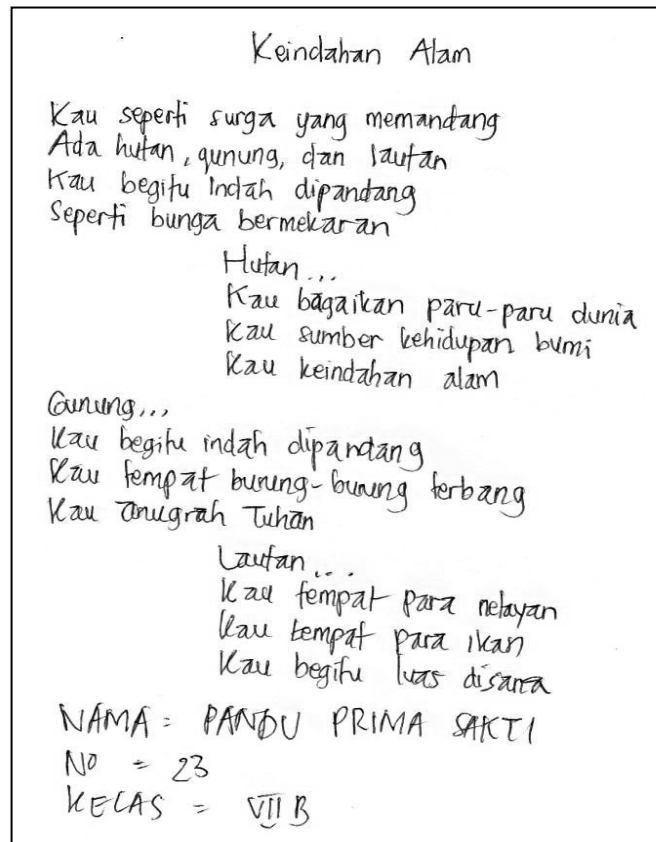 Keindahan Alam
Kau seperti surga yang memandang
Ada hutan, gunung, dan lautan
Kau begitu indah dipandang
Seperti bunga bermekaran
Hutan...
Kau bagaikan paru-paru dunia
Kau sumber kehidupan bumi
Kau keindahan alam
Gunung...
Kau begitu indah dipandang
Kau tempat burung-burung terbang
Kau anugrah Tuhan
Lautan...
Kau tempat para nelayan
Kau tempat para ikan
Kau begitu luas disana
NAMA = PANDU PRIMA SAKTI
NO = 23
KELAS = VII B